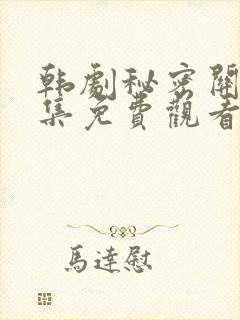 韩劇秘密關
集免費觀看
馬達慰